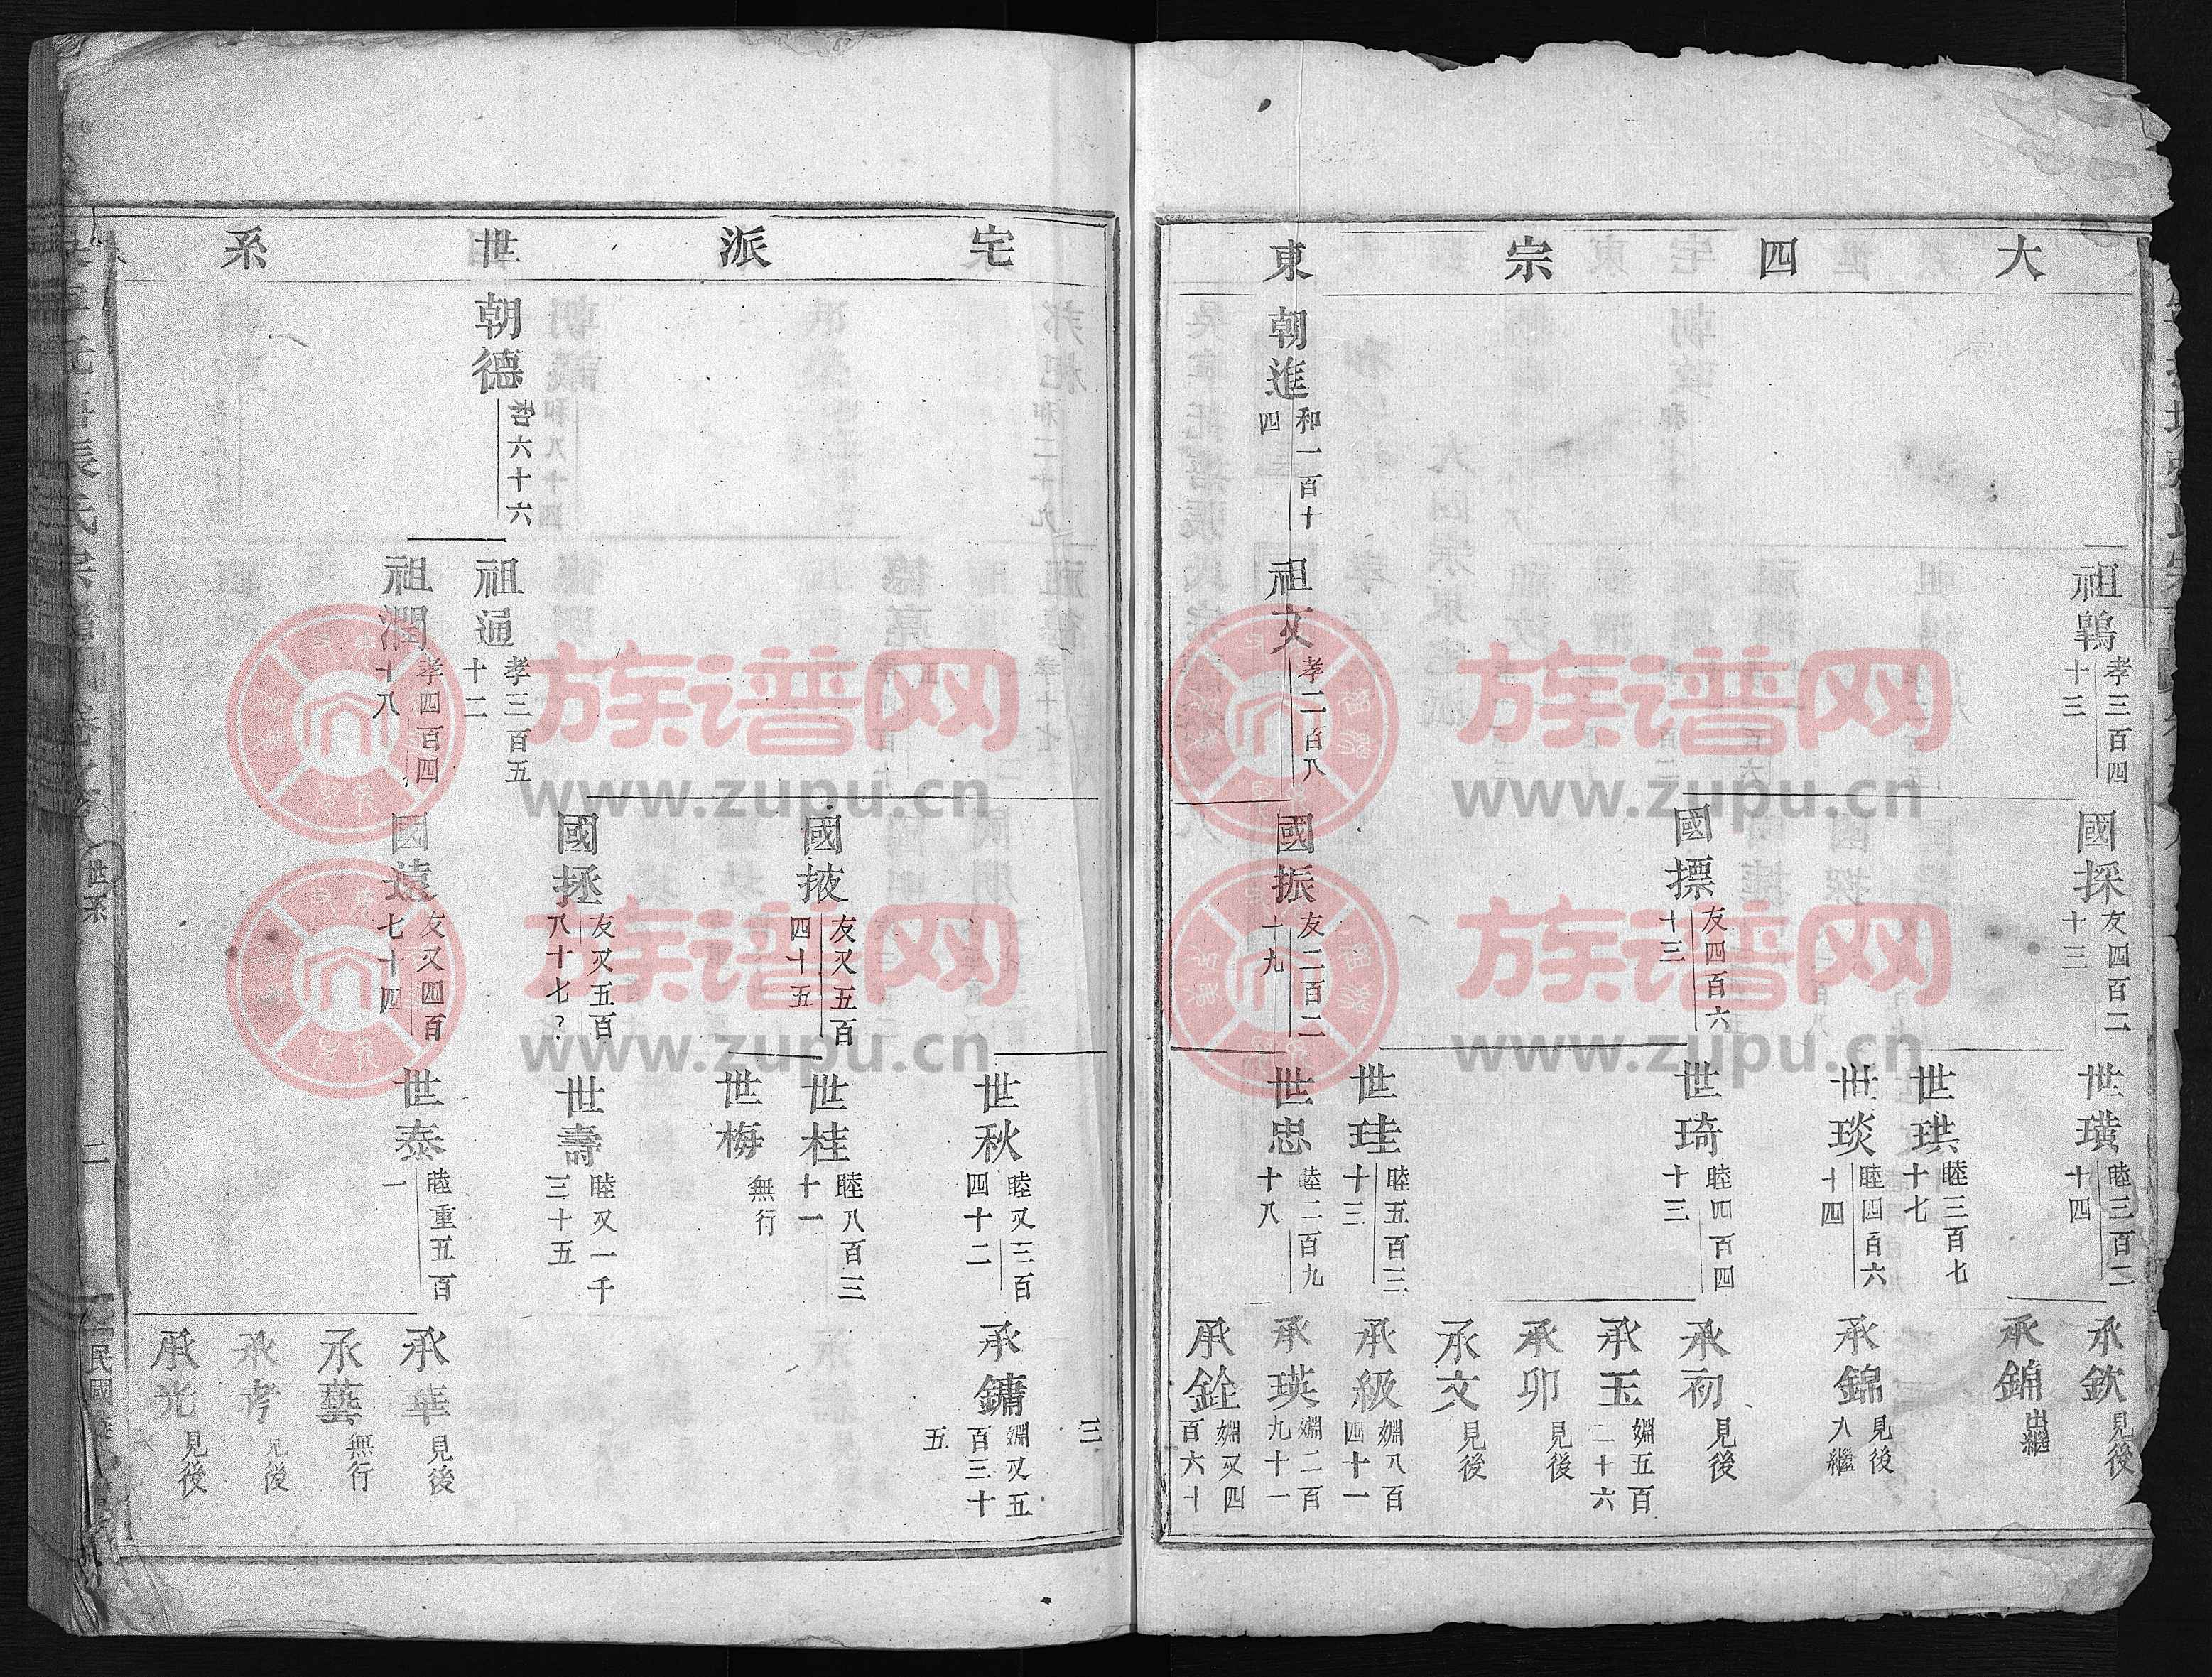 大四宗東
祖鵾 孝三百四十三
國採 友四百二十三
世璜 睦三百二十四
承欽 見後
承錦 出繼
世珙 睦三百七十七
世琰 睦四百六十四
承錦 見後入繼
國摽 友四百六十三
世琦 睦四百四十三
承初 見後
承玉 婣五百二十六
承卯 見後
承文 見後
世珪 睦五百三十三
承級 婣八百四十一
朝進 和一百十四
祖文 孝二百八
國振 友二百二十九
世忠 睦二百九十八
承瑛 婣二百九十一
承銓 婣又四百六十
宅派世系
三
世秋 睦又三百四十二
承鏞 婣又五百三十五
國掖 友又五百四十五
世桂 睦八百三十一
世梅 無行
國拯 友又五百八十七?
世壽 睦又一千三十五
朝德 和六十六
祖通 孝三百五十二
祖潤 孝四百四十八
國遠 友又四百七十四
世泰 睦重五百一
承華 見後
承藝 無行
承考 見後
承光 見後
張氏宗譜
世系
二
民國
族谱网
www.zupu.cn
族谱网
www.zupu.cn
族谱网
www.zupu.cn
族谱网
www.zupu.cn